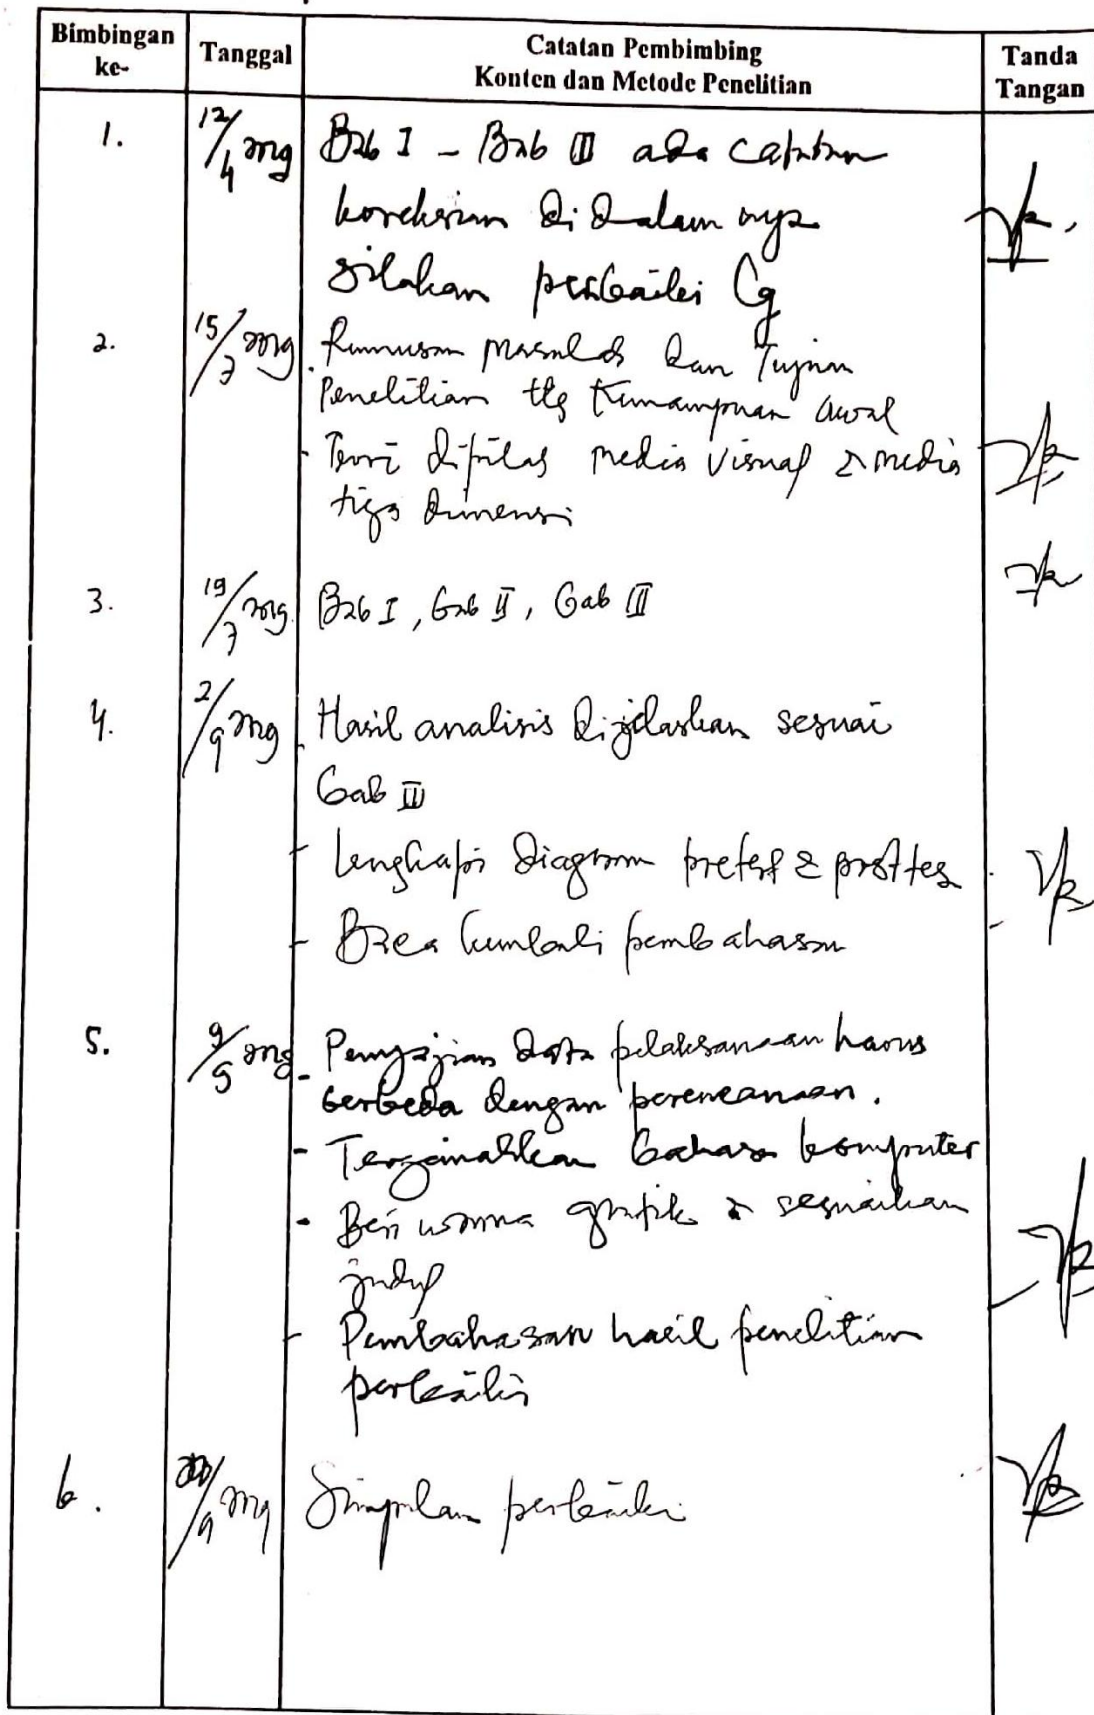 Bimbingan ke-
Tanggal
Catatan Pembimbing
Konten dan Metode Penelitian
Tanda Tangan
1.
12/4 2019
Bab I - Bab III ada catatan
koreksian di dalam nya
silahkan perbaiki lg
2.
15/7 2019
Rumusan masalah dan Tujuan
Penelitian ttg Kemampuan awal
- Teori dipilas media visual & media
tiga dimensi
3.
19/7 2019
Bab I, bab II, bab III
4.
2/9 2019
- Hasil analisis dijelaskan sesuai
bab III
- Lengkapi diagram pretest & posttes
- Baca kembali pembahasan
5.
9/9 2019
- Penyajian data pelaksanaan harus
berbeda dengan perencanaan.
- Terjemahkan bahasa komputer
- Beri warna grafik & sesuaikan
judul
- Pembahasan hasil penelitian
perbaiki
6.
/9 2019
Simpulan perbaiki